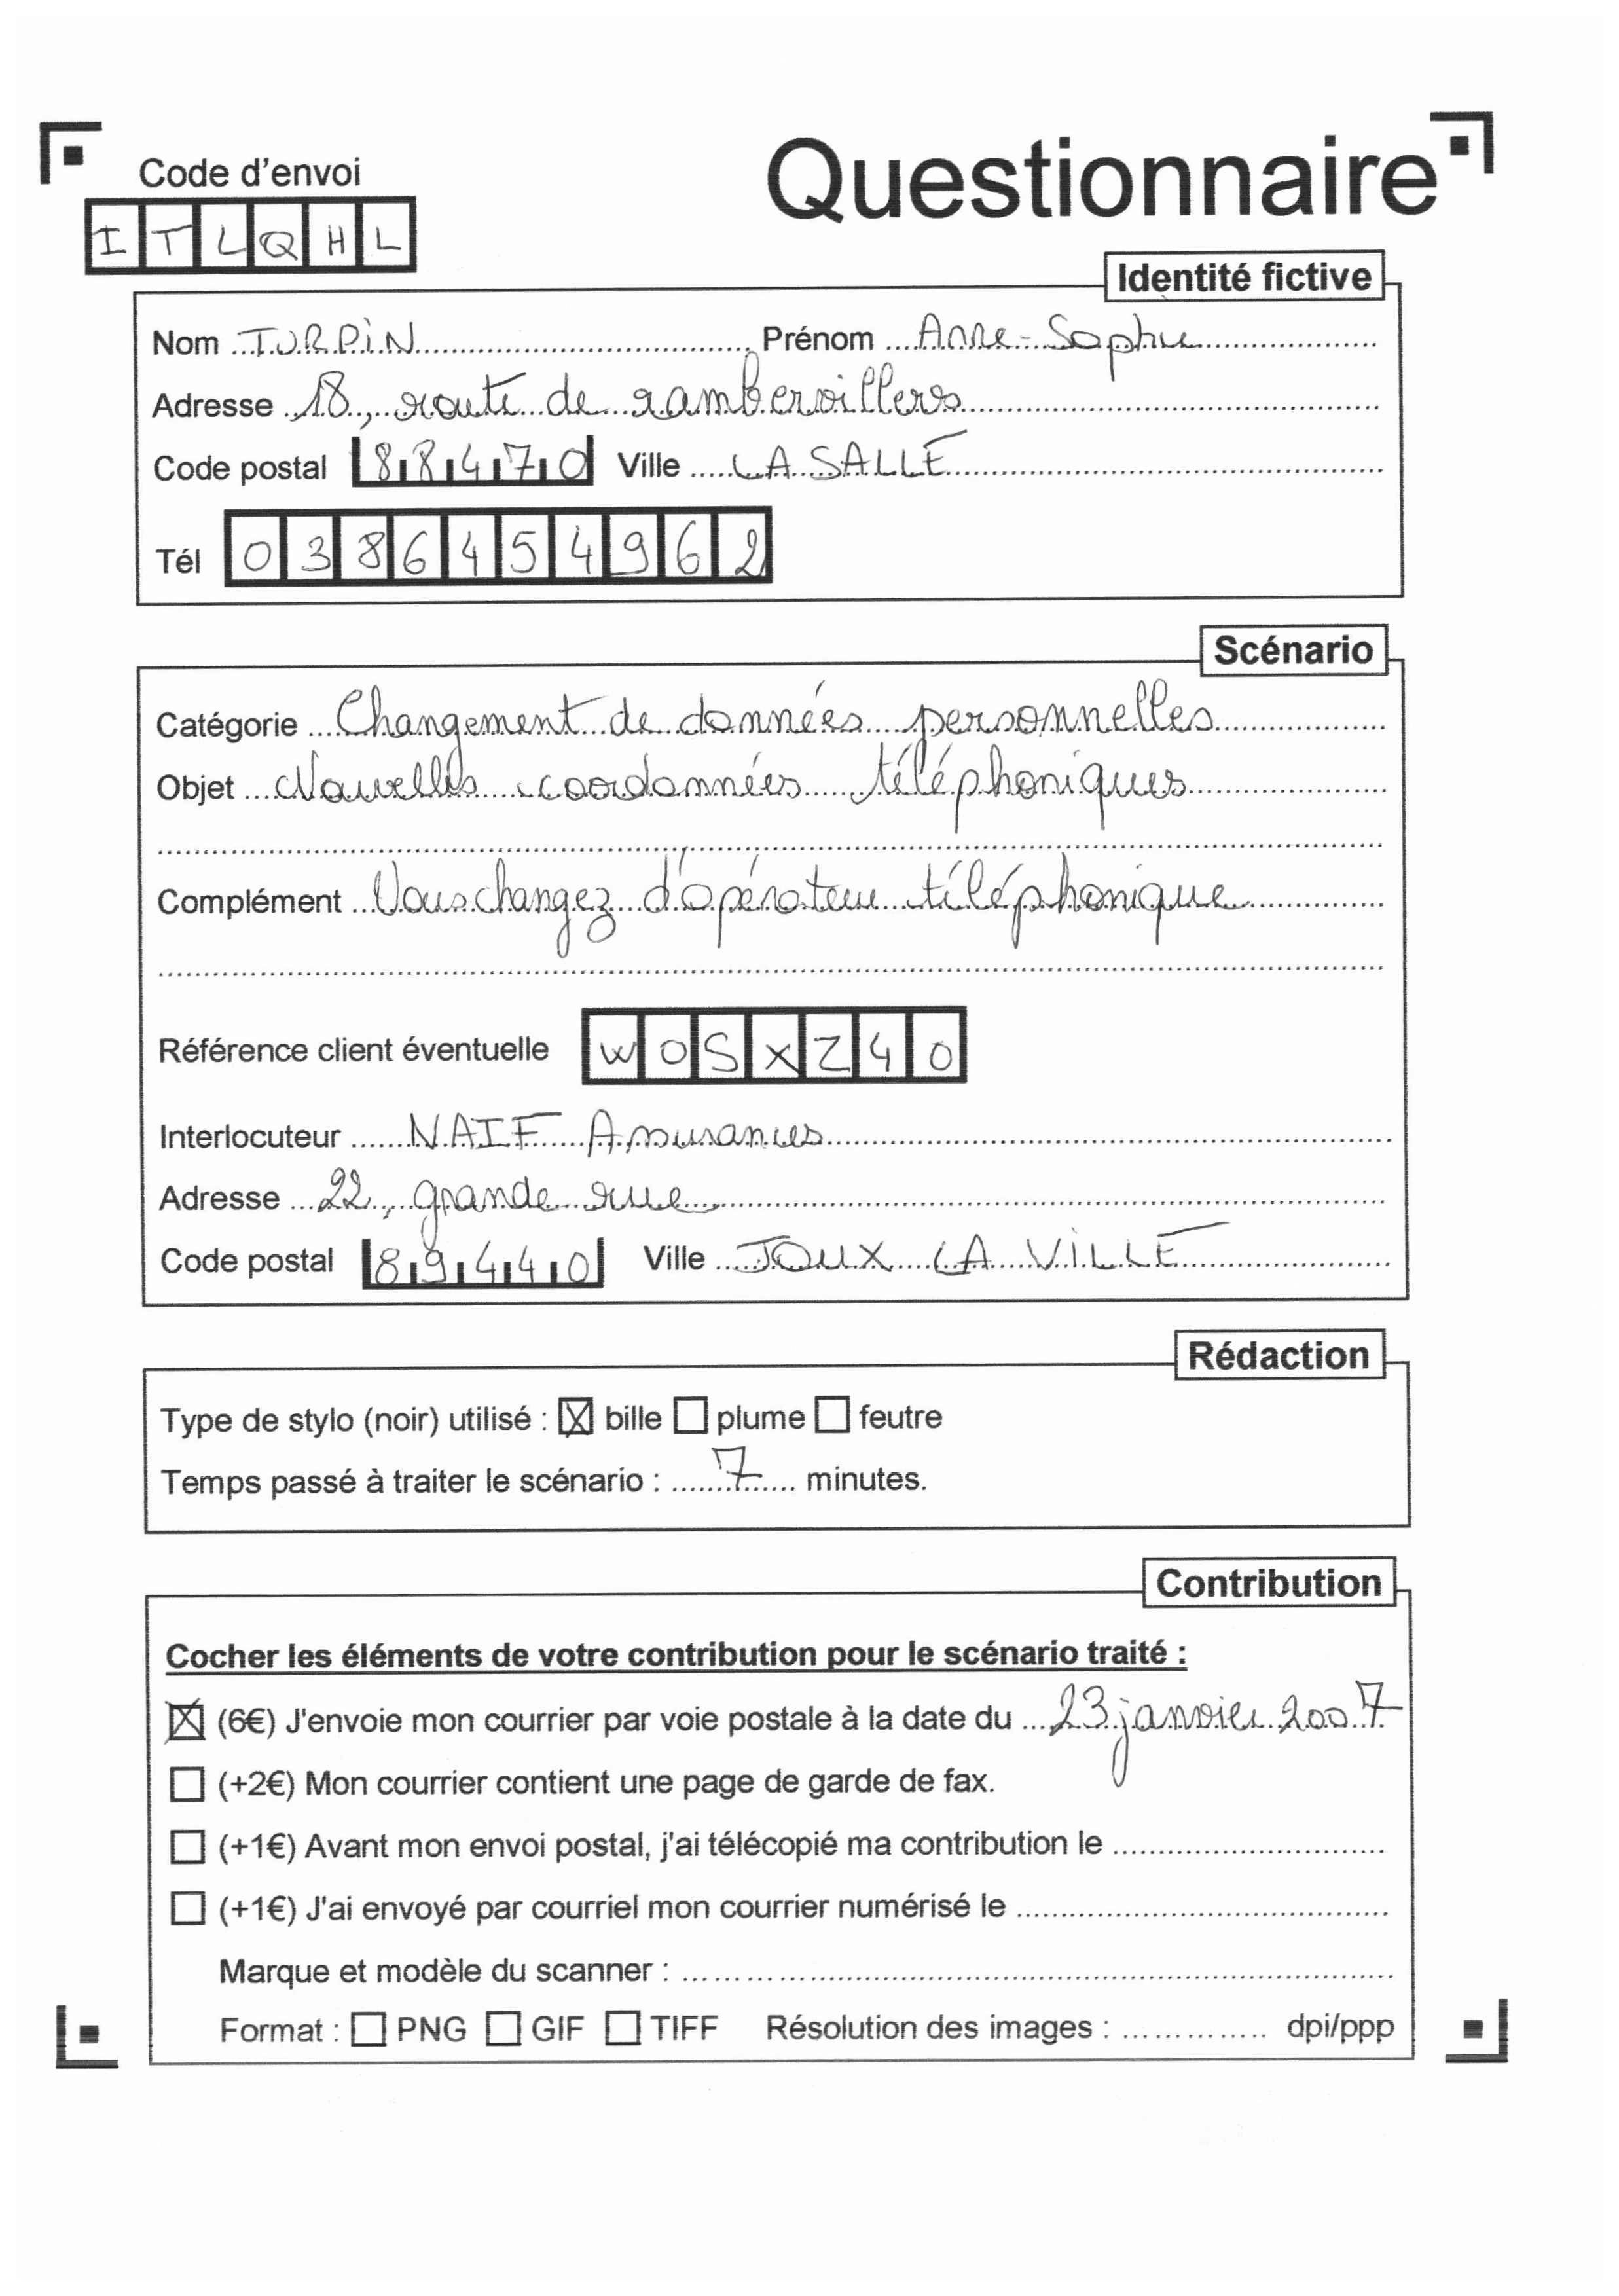 Code d'envoi
Questionnaire
ITLQHL
Identité fictive
Nom TURPIN Prénom Anne-Sophie
Adresse 18, route de rambervillers
Code postal 88470 Ville LA SALLE
Tél 0386454962
Scénario
Catégorie Changement de données personnelles
Objet Nouvelles coordonnées téléphoniques
Complément Vous changez d'opérateur téléphonique
Référence client éventuelle WOSXZ40
Interlocuteur NAIF Assurances
Adresse 22, grande rue
Code postal 89440 Ville JOUX LA VILLE
Rédaction
Type de stylo (noir) utilisé : bille plume feutre
Temps passé à traiter le scénario : 7 minutes.
Contribution
Cocher les éléments de votre contribution pour le scénario traité :
(6€) J'envoie mon courrier par voie postale à la date du 23 janvier 2007
(+2€) Mon courrier contient une page de garde de fax.
(+1€) Avant mon envoi postal, j'ai télécopié ma contribution le
(+1€) J'ai envoyé par courriel mon courrier numérisé le
Marque et modèle du scanner :
Format : PNG GIF TIFF Résolution des images : dpi/ppp